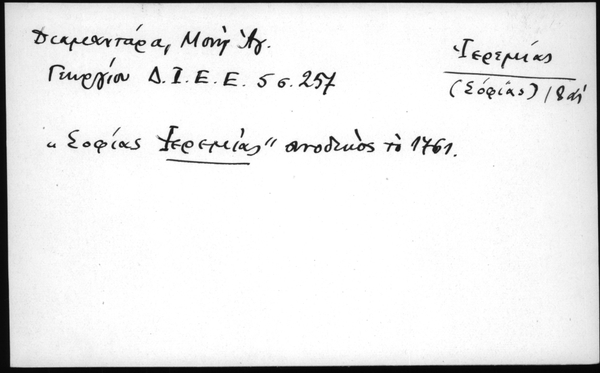 Διαμαντάρα, Μονὴ Ἁγ.
Γεωργίου Δ.Ι.Ε.Ε. 5 σ. 257
Ἱερεμίας
(Σόφιας) 18 αἰ
"Σοφίας Ἱερεμίας" συνοδικὸς τὸ 1761.